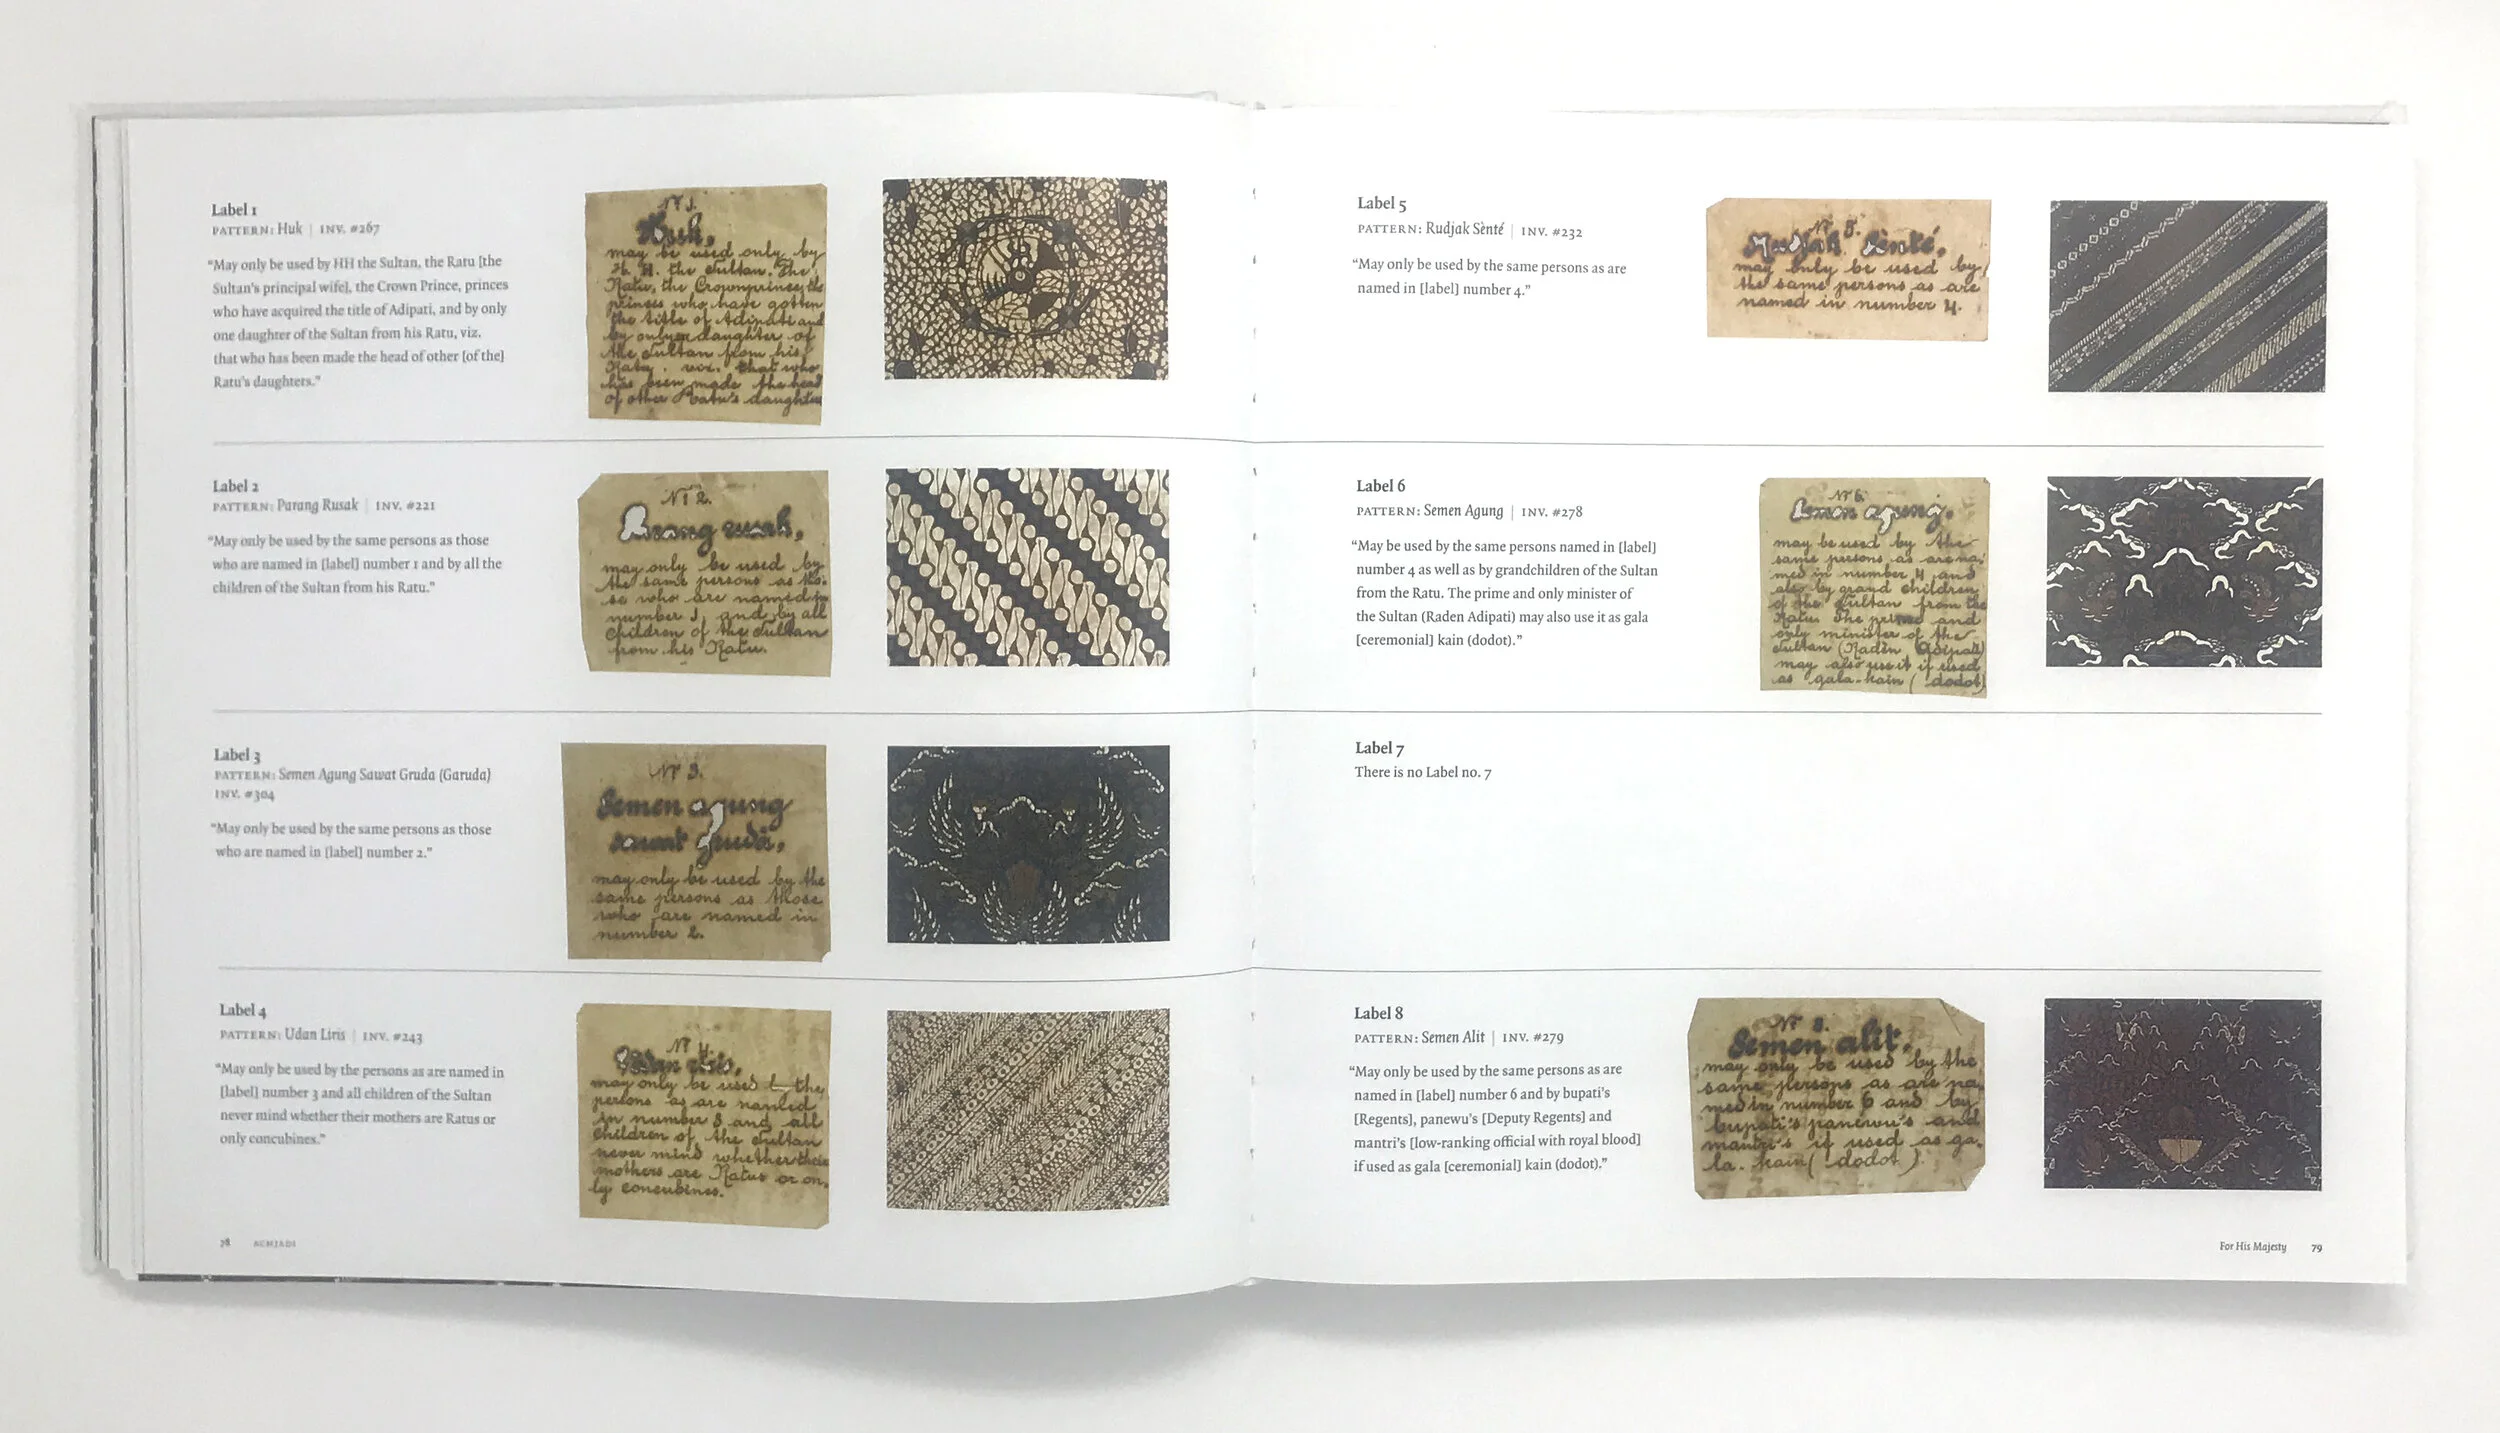 Label 1
PATTERN: Huk | INV. #267
"May only be used by HH the Sultan, the Ratu [the
Sultan's principal wife], the Crown Prince, princes
who have acquired the title of Adipati, and by only
one daughter of the Sultan from his Ratu, viz.
that who has been made the head of other [of the]
Ratu's daughters."
Nº 1.
Huk,
may be used only by
H. H. the Sultan. The
Ratu, the Crownprince, the
princes who have gotten
the title of Adipati and
by only one daughter of
the Sultan from his
Ratu. viz. that who
has been made the head
of other Ratu's daughters
Label 2
PATTERN: Parang Rusak | INV. #221
"May only be used by the same persons as those
who are named in [label] number 1 and by all the
children of the Sultan from his Ratu."
Nº 2.
rusak,
may only be used by
the same persons as tho-
se who are named in
number 1, and by all
children of the Sultan
from his Ratu.
Label 3
PATTERN: Semen Agung Sawat Gruda (Garuda)
INV. #304
"May only be used by the same persons as those
who are named in [label] number 2."
Nº 3.
Semen agung
sawat gruda,
may only be used by the
same persons as those
who are named in
number 2.
Label 4
PATTERN: Udan Liris | INV. #243
"May only be used by the persons as are named in
[label] number 3 and all children of the Sultan
never mind whether their mothers are Ratus or
only concubines."
Nº 4.
Udan liris,
may only be used by the
persons as are named
in number 3 and all
children of the Sultan
never mind whether their
mothers are Ratus or on-
ly concubines.
78 ACHJADI
Label 5
PATTERN: Rudjak Sènté | INV. #232
"May only be used by the same persons as are
named in [label] number 4."
Nº 5.
Rudjak Sènté,
may only be used by
the same persons as are
named in number 4.
Label 6
PATTERN: Semen Agung | INV. #278
"May be used by the same persons named in [label]
number 4 as well as by grandchildren of the Sultan
from the Ratu. The prime and only minister of
the Sultan (Raden Adipati) may also use it as gala
[ceremonial] kain (dodot)."
Nº 6.
Semen agung,
may be used by the
same persons as are na-
med in number 4 and
also by grand children
of the Sultan from the
Ratu. The prime and
only minister of the
Sultan (Raden Adipati)
may also use it if used
as gala-kain (dodot)
Label 7
There is no Label no. 7
Label 8
PATTERN: Semen Alit | INV. #279
"May only be used by the same persons as are
named in [label] number 6 and by bupati's
[Regents], panewu's [Deputy Regents] and
mantri's [low-ranking official with royal blood]
if used as gala [ceremonial] kain (dodot)."
Nº 8.
Semen alit,
may only be used by the
same persons as are na-
med in number 6 and by
bupati's panewu's and
mantri's if used as ga-
la-kain (dodot).
For His Majesty 79